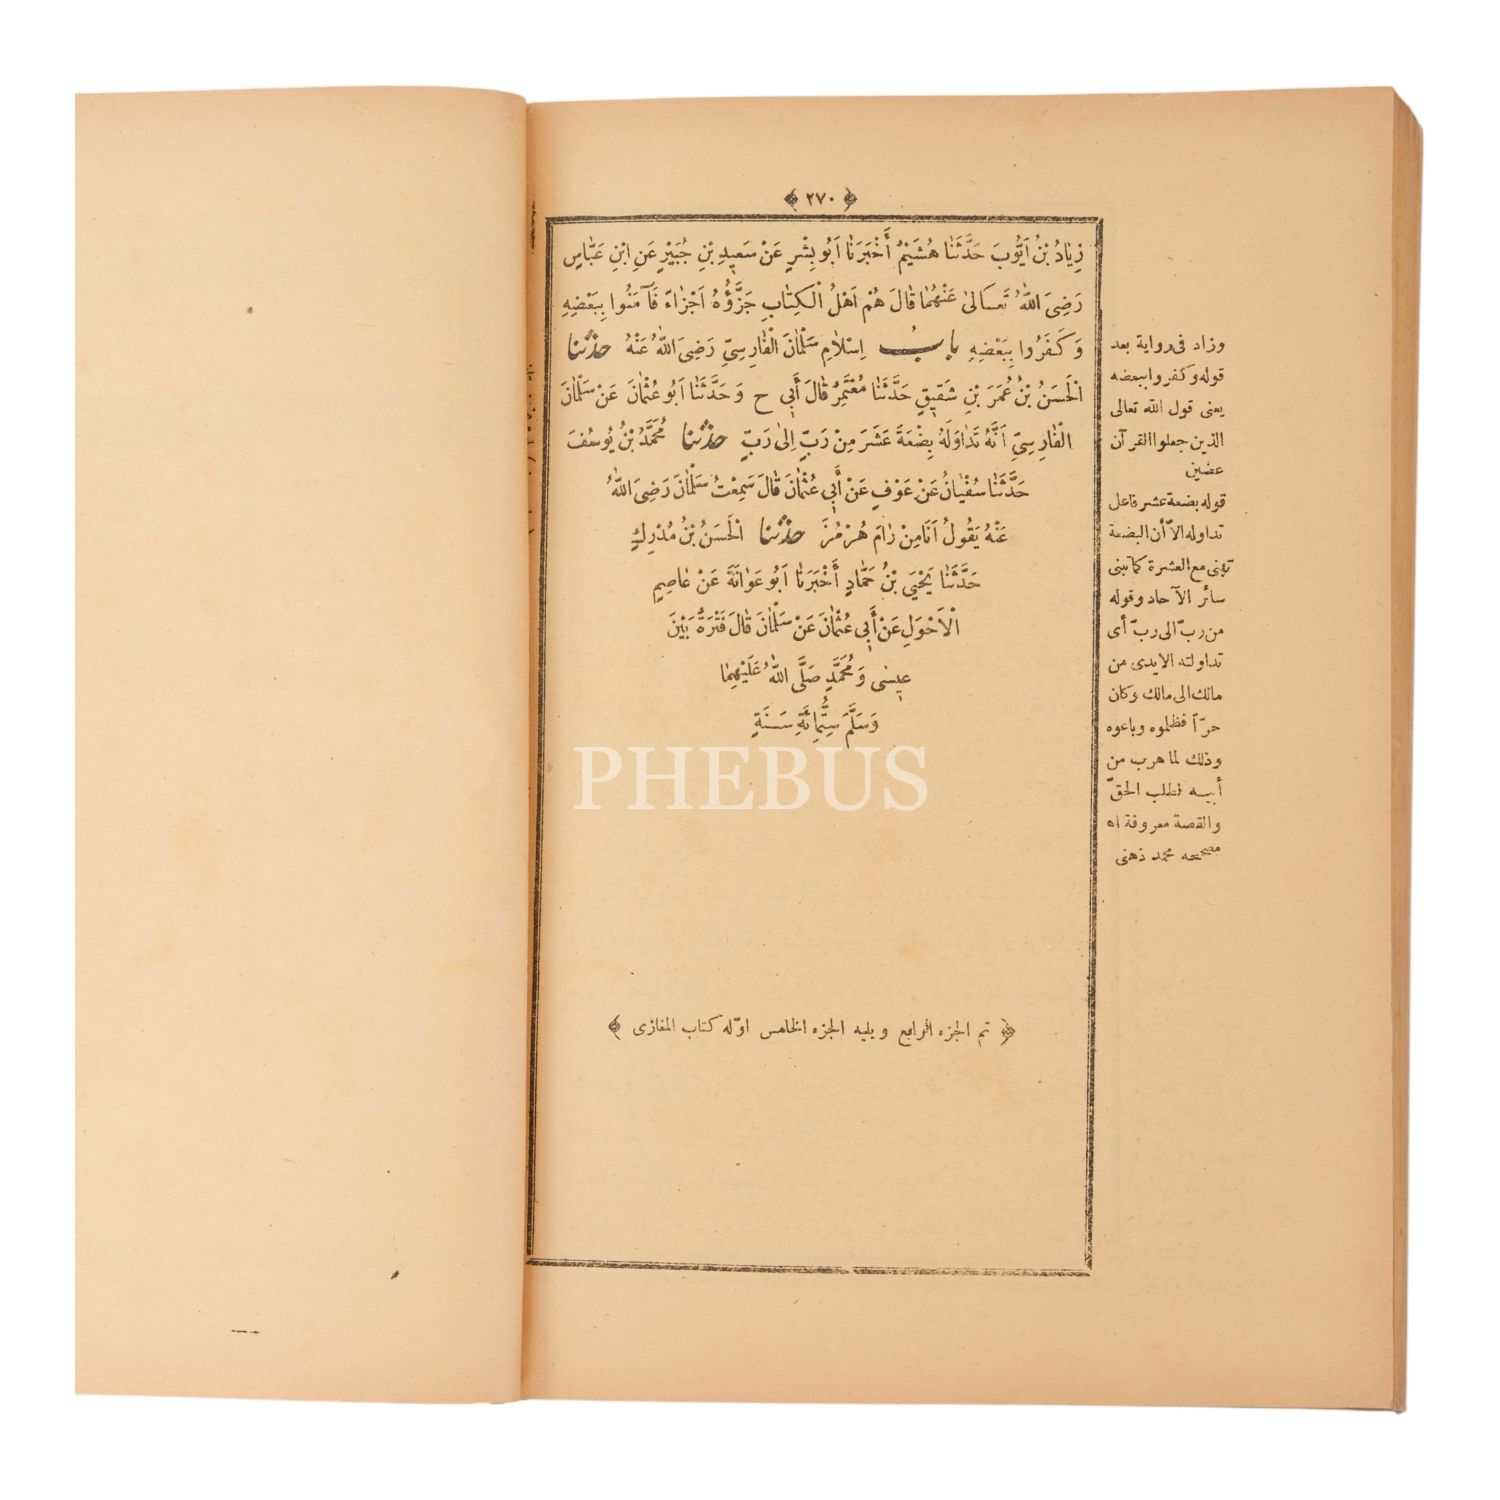 ﴿ ٢٧٠ ﴾
زِيَادُ بْنُ اَيُّوبَ حَدَّثَنَا هُشَيْمٌ أَخْبَرَنَا اَبُو بِشْرٍ عَنْ سَعِيدِ بْنِ جُبَيْرٍ عَنِ ابْنِ عَبَّاسٍ
رَضِىَ اللّٰهُ تَعَالىٰ عَنْهُمَا قَالَ هُمْ اَهْلُ الْكِتَابِ جَزَّؤُهُ اَجْزَاءً فَآمَنُوا بِبَعْضِهِ
وَكَفَرُوا بِبَعْضِهِ بابُ اِسْلَامِ سَلْمَانَ الْفَارِسِيِّ رَضِىَ اللّٰهُ عَنْهُ حدثنا
الْحَسَنُ بْنُ عُمَرَ بْنِ شَقِيقٍ حَدَّثَنَا مُعْتَمِرٌ قَالَ أَبِي ح وَحَدَّثَنَا اَبُو عُثْمَانَ عَنْ سَلْمَانَ
الْفَارِسِيِّ اَنَّهُ تَدَاوَلَهُ بِضْعَةَ عَشَرَ مِنْ رَبٍّ اِلىٰ رَبٍّ حدثنا مُحَمَّدُ بْنُ يُوسُفَ
حَدَّثَنَا سُفْيَانُ عَنْ عَوْفٍ عَنْ أَبِي عُثْمَانَ قَالَ سَمِعْتُ سَلْمَانَ رَضِىَ اللّٰهُ
عَنْهُ يَقُولُ اَنَا مِنْ رَامَ هُرْمُزَ حدثنا الْحَسَنُ بْنُ مُدْرِكٍ
حَدَّثَنَا يَحْيَى بْنُ حَمَّادٍ أَخْبَرَنَا اَبُو عَوَانَةَ عَنْ عَاصِمٍ
الْاَحْوَلِ عَنْ أَبِي عُثْمَانَ عَنْ سَلْمَانَ قَالَ فَتْرَةُ بَيْنَ
عِيسٰى وَمُحَمَّدٍ صَلَّى اللّٰهُ عَلَيْهِمَا
وَسَلَّمَ سِتُّمِائَةِ سَنَةٍ
﴿ تم الجزء الرابع ويليه الجزء الخامس اوّله كتاب المغازى ﴾
وزاد فى رواية بعد
قوله وكفروا ببعضه
يعنى قول الله تعالى
الذين جعلوا القرآن
عضين
قوله بضعة عشر فاعل
تداوله الاّ أن البضعة
تبنى مع العشرة كما تبنى
سائر الآحاد وقوله
من ربّ الى ربّ أى
تداولته الايدى من
مالك الى مالك وكان
حرّاً فظلموه وباعوه
وذلك لما هرب من
أبيه لطلب الحقّ
والقصة معروفة اه
مصححه محمد ذهنى
PHEBUS